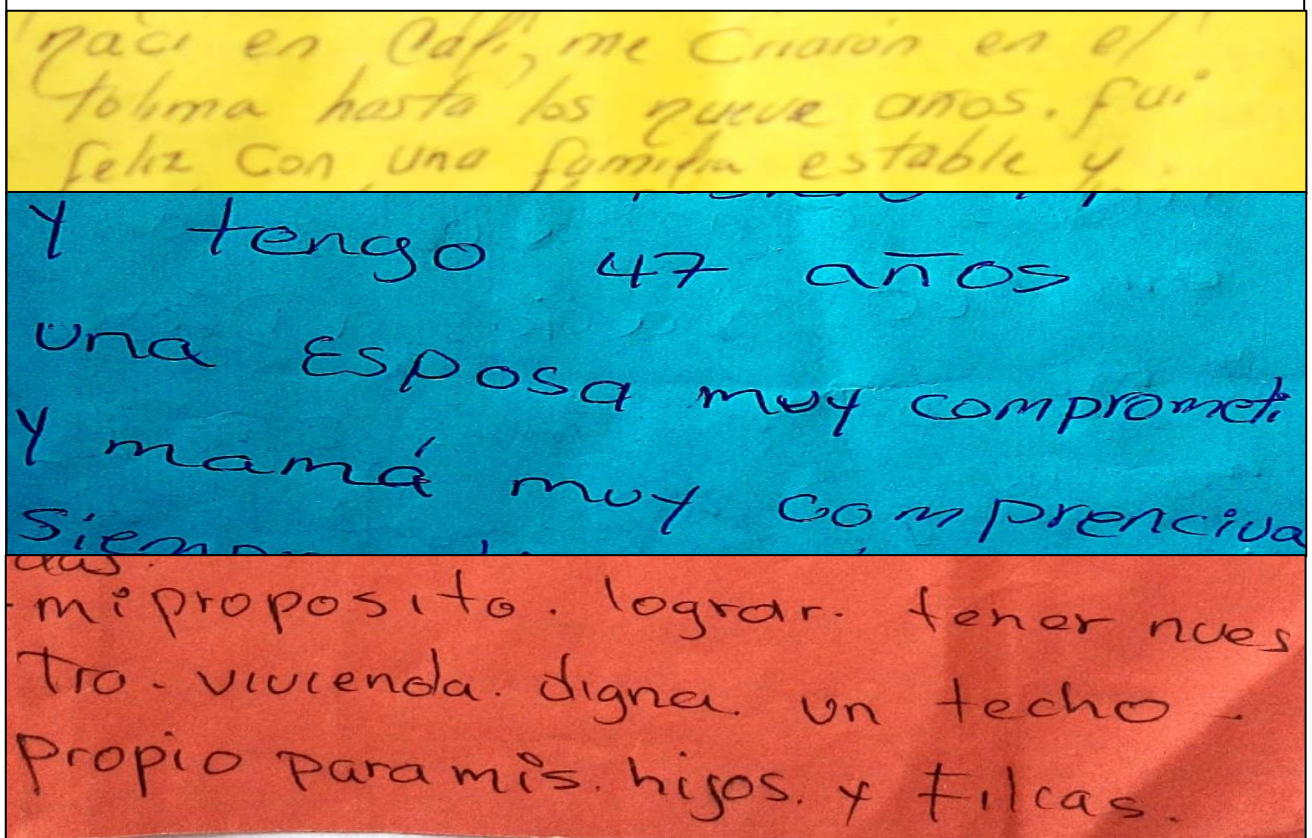 naci en Cali, me Criarón en el
tolima hasta los nueve años. fui
feliz Con una familia estable y
Y tengo 47 años
una Esposa muy comprometi
Y mamá muy comprenciva
siem
das.
mi proposito. lograr. tener nues
tro. vivienda. digna. un techo.
propio para mis. hijos. y Filcas.